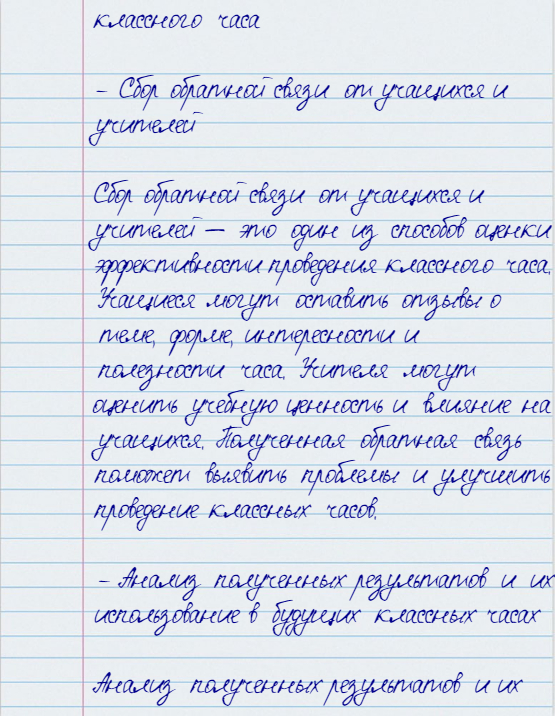 классного часа
- Сбор обратной связи от учащихся и
учителей
Сбор обратной связи от учащихся и
учителей — это один из способов оценки
эффективности проведения классного часа.
Учащиеся могут оставить отзывы о
теме, форме, интересности и
полезности часа. Учителя могут
оценить учебную ценность и влияние на
учащихся. Полученная обратная связь
поможет выявить проблемы и улучшить
проведение классных часов.
- Анализ полученных результатов и их
использование в будущих классных часах
Анализ полученных результатов и их